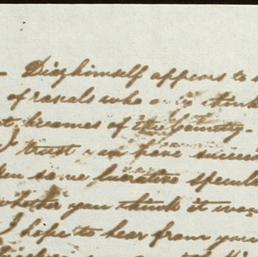 - Diaz himself appears to
of rascals who only think
becomes of the Country.
I trust I am fine
some lucrative
whether you think it
I hope to hear from you